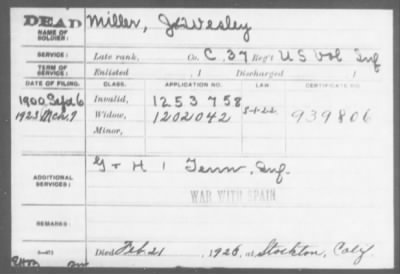 DEAD
NAME OF SOLDIER: Miller, Jno Wesley
SERVICE: Late rank, Co. C, 37 Reg't U S Vol Inf
TERM OF SERVICE: Enlisted , 1 Discharged , 1
DATE OF FILING. CLASS. APPLICATION NO. LAW CERTIFICATE NO.
1900 Sept 6 Invalid, 1253758
1923 Mch 9 Widow, 1202042 5-1-22 939806
Minor,
ADDITIONAL SERVICES: G + H 1 Tenn. Inf.
WAR WITH SPAIN
REMARKS:
Died Feb. 21 , 1923, at Stockton, Calif